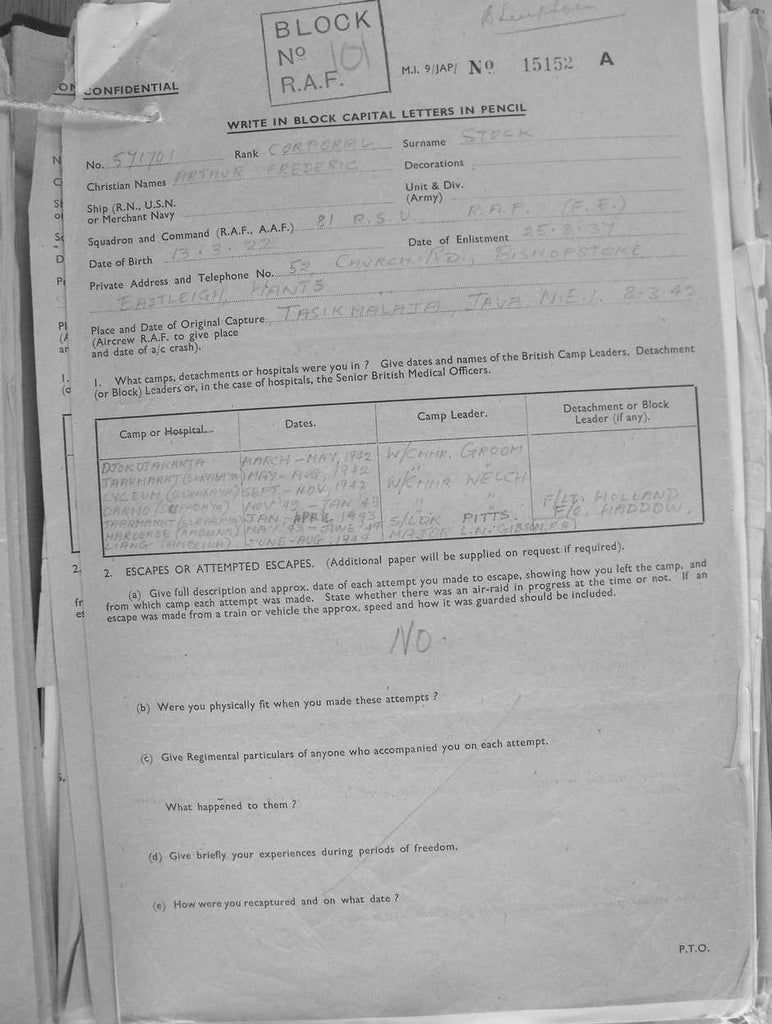 BLOCK
Nº 101
R.A.F.
M.I. 9/JAP/ Nº 15152 A
CONFIDENTIAL
WRITE IN BLOCK CAPITAL LETTERS IN PENCIL
No. 571701 Rank CORPORAL Surname STOCK
Christian Names ARTHUR FREDERIC Decorations
Ship (R.N., U.S.N. or Merchant Navy
Unit & Div. (Army)
Squadron and Command (R.A.F., A.A.F.) 81 R.S.U. R.A.F. (F.E.)
Date of Birth 13.3.22 Date of Enlistment 25.8.37
Private Address and Telephone No. 52 CHURCH RD., BISHOPSTOKE
EASTLEIGH, HANTS
Place and Date of Original Capture TASIKMALAJA, JAVA N.E.I. 8-3-42
(Aircrew R.A.F. to give place
and date of a/c crash).
1. What camps, detachments or hospitals were you in ? Give dates and names of the British Camp Leaders, Detachment
(or Block) Leaders or, in the case of hospitals, the Senior British Medical Officers.
Camp or Hospital. Dates. Camp Leader. Detachment or Block Leader (if any).
DJOKJAKARTA MARCH - MAY, 1942 W/CMMR. GROOM
JAARMARKT (SURABAYA) MAY - AUG, 1942 "
LYCEUM (SURABAYA) SEPT - NOV, 1942 W/CMMR WELCH
DARMO (SURABAYA) NOV '42 - JAN '43 " " F/LT. HOLLAND
JAARMARKT (SURABAYA) JAN - APRIL 1943 S/LDR PITTS. F/O. HADDOW.
HAROEKOE (AMBOINA) MAY '43 - JUNE '44
LIANG (AMBOINA) JUNE - AUG, 1944 MAJOR L.N. GIBSON, R.A.
2. ESCAPES OR ATTEMPTED ESCAPES. (Additional paper will be supplied on request if required).
(a) Give full description and approx. date of each attempt you made to escape, showing how you left the camp, and
from which camp each attempt was made. State whether there was an air-raid in progress at the time or not. If an
escape was made from a train or vehicle the approx. speed and how it was guarded should be included.
NO.
(b) Were you physically fit when you made these attempts ?
(c) Give Regimental particulars of anyone who accompanied you on each attempt.
What happened to them ?
(d) Give briefly your experiences during periods of freedom.
(e) How were you recaptured and on what date ?
P.T.O.